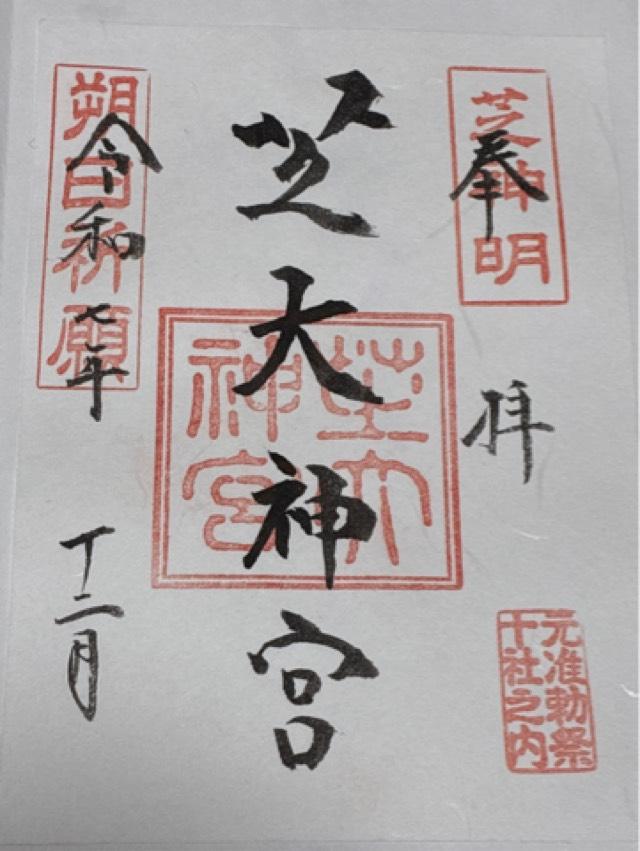 芝神明
奉拝
元准勅祭
十社之内
芝大神宮
芝大
神宮
朔日祈願
令和七年
十二月